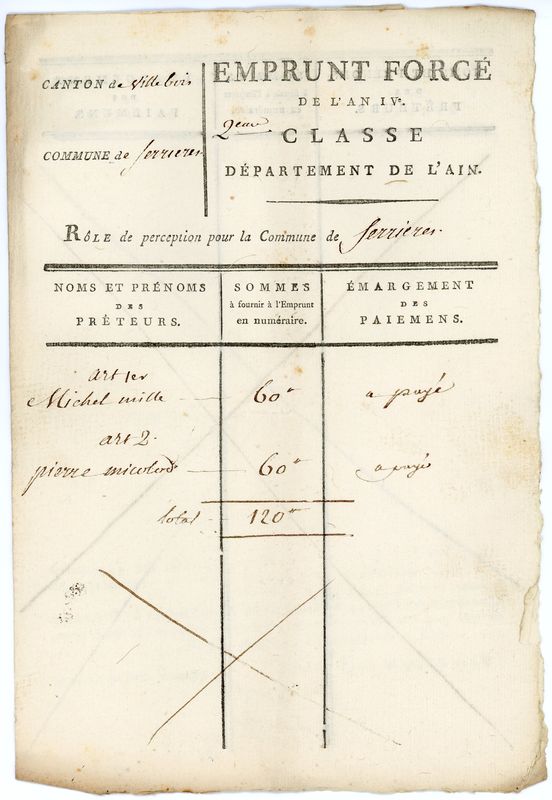 CANTON de Villebois
COMMUNE de Serrieres
EMPRUNT FORCÉ
DE L'AN IVe.
2eme
CLASSE
DÉPARTEMENT DE L'AIN.
RÔLE de perception pour la Commune de Serrieres.
NOMS ET PRÉNOMS
DES
PRÊTEURS.
SOMMES
à fournir à l'Emprunt
en numéraire.
ÉMARGEMENT
DES
PAIEMENS.
art 1er
Michel mille 60 a payé
art 2.
pierre 60 a payé
total 120